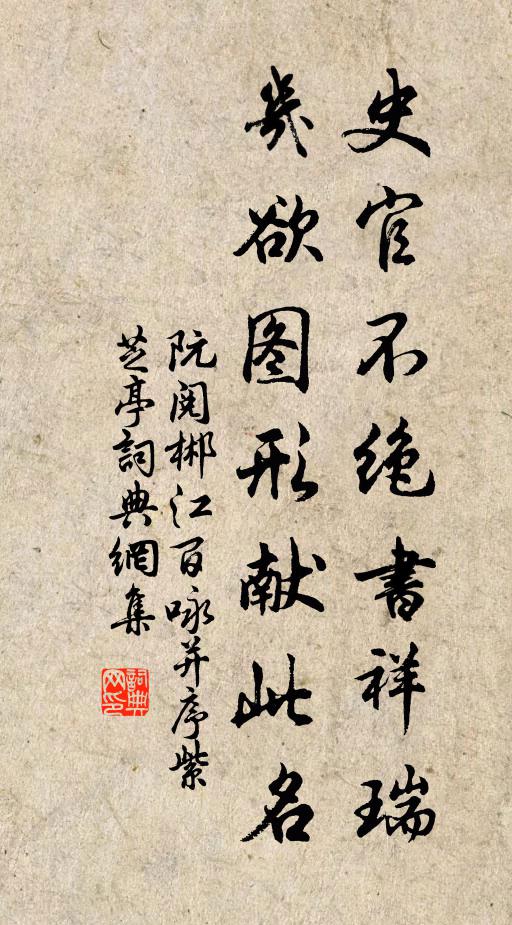 史官不绝書祥瑞
幾欲图形献此名
阮阅郴江百咏并序紫
芝亭詞典網集
詞典
网印